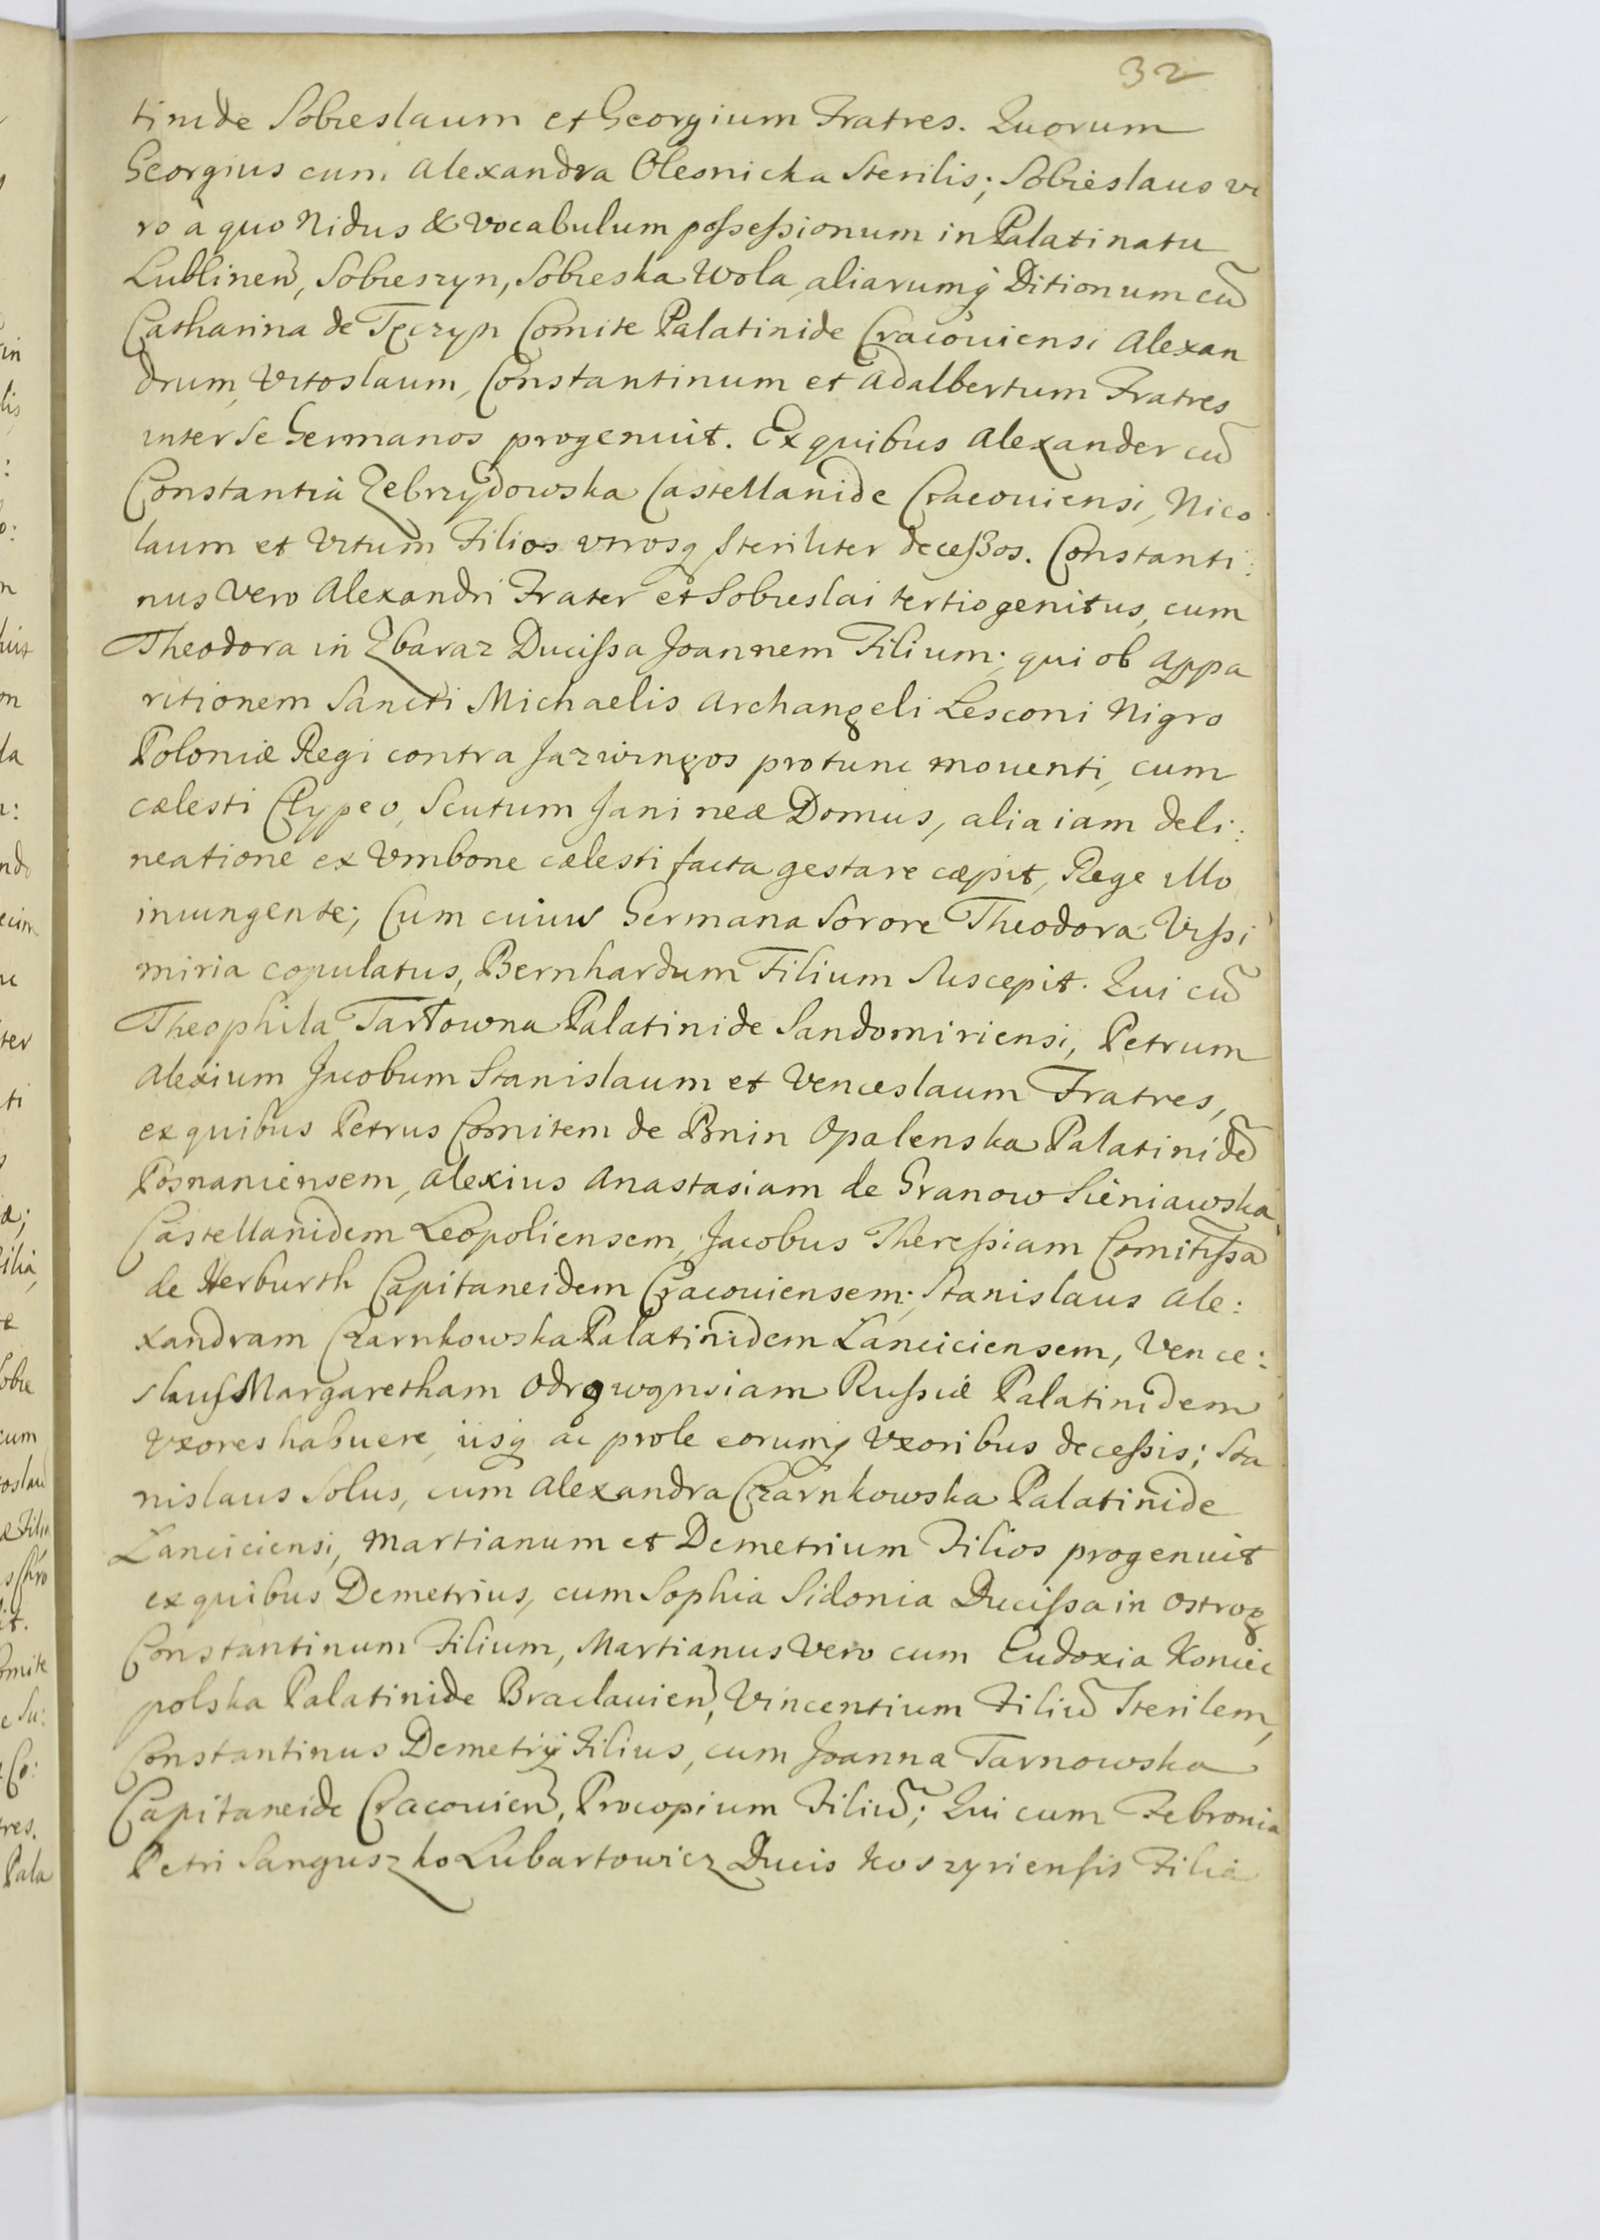 32
tinide Sobieslaum et Georgium Fratres. Quorum
Georgius cum Alexandra Olesnicka Sterilis; Sobieslaus ve
ro à quo Nidus & vocabulum possessionum in Palatinatu
Lublineñ, Sobieszyn, Sobieska Wola, aliarumq́ Ditionum cũ
Catharina de Tęczyn Comite Palatinide Cracouiensi Alexan
drum, Vitoslaum, Constantinum et Adalbertum Fratres
inter se Germanos progenuit. Ex quibus Alexander cũ
Constantia Zebrzydowska Castellanide Cracouiensi, Nico
laum et Vitum Filios vtrosq steriliter decessos. Constanti:
nus vero Alexandri Frater et Sobieslai tertiogenitus, cum
Theodora in Zbaraz Ducissa Joannem Filium; qui ob appa
ritionem Sancti Michaelis Archangeli Lesconi Nigro
Poloniæ Regi contra Jazwingos protunc mouenti, cum
cælesti Clypeo, Scutum Janineæ Domus, alia iam deli:
neatione ex Vmbone cælesti facta gestare cæpit, Rege illo
iniungente; Cum cuius Germana Sorore Theodora Vissi
miria copulatus, Bernhardum Filium Suscepit. Qui cũ
Theophila Tarłowna Palatinide Sandomiriensi, Petrum
Alexium Jacobum Stanislaum et Venceslaum Fratres,
ex quibus Petrus Comitem de Bnin Opalenska Palatinidẽ
Posnaniensem, Alexius Anastasiam de Granow Sieniawska
Castellanidem Leopoliensem, Jacobus Theressiam Comitissã
de Herburth Capitaneidem Cracouiensem; Stanislaus Ale:
xandram Czarnkowska Palatinidem Lanciciensem, Vence:
slaus Margaretham Odrowąnsiam Russiæ Palatinidem
Vxores habuere, iisq ac prole eorumq Vxoribus decessis; Sta
nislaus Solus, cum Alexandra Czarnkowska Palatinide
Lanciciensi, Martianum et Demetrium Filios progenuit
ex quibus Demetrius, cum Sophia Sidonia Ducissa in Ostrog
Constantinum Filium, Martianus Vero cum Eudoxia Koniec
polska Palatinide Braclauieñ, Vincentium Filiũ Sterilem,
Constantinus Demetrij Filius, cum Joanna Tarnowska
Capitaneide Cracouieñ, Procopium Filiũ; Qui cum Febronia
Petri Sanguszko Lubartowicz Ducis Koszyriensis Filia